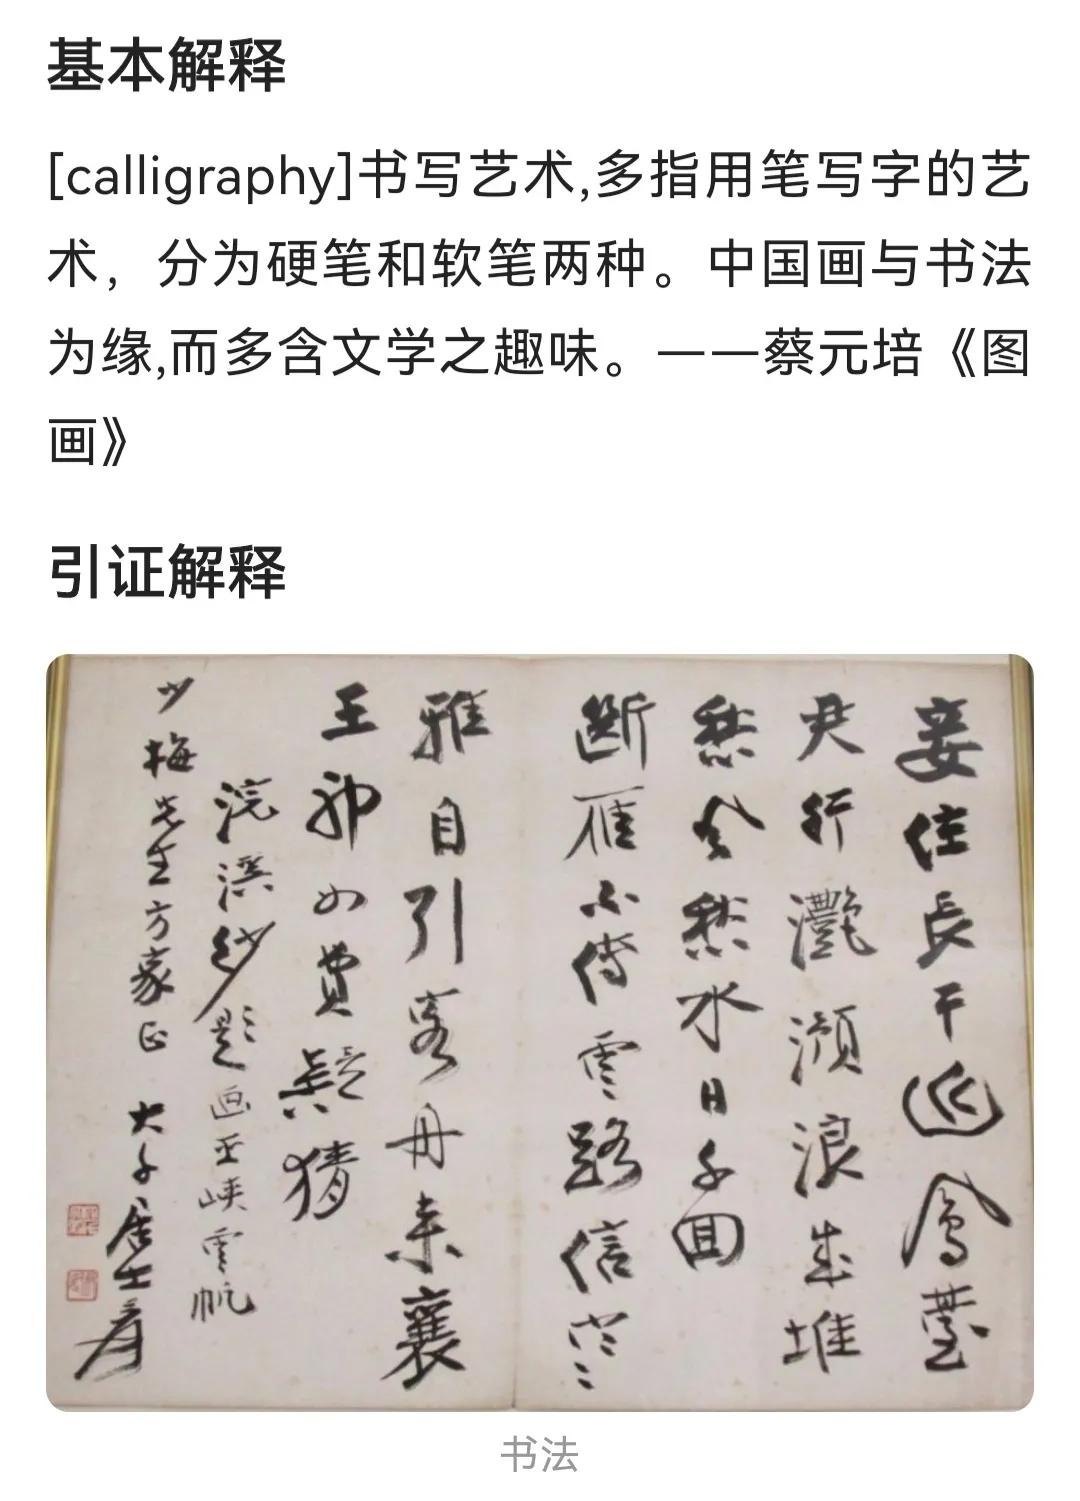 基本解释
[calligraphy]书写艺术,多指用笔写字的艺
术，分为硬笔和软笔两种。中国画与书法
为缘,而多含文学之趣味。——蔡元培《图
画》
引证解释
妾住長干近鳳臺
尹行灧澦浪成堆
愁風愁水日千回
斷雁不傳雲路信
雅自引舟來
王郎費猜
浣溪紗題画巫峽雲帆
少梅先生方家正 大千居士爰
书法